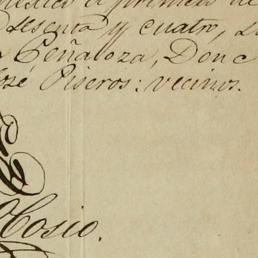 á primero de
sesenta y cuatro,
Peñaloza, Don
José Piseros: vecinos.
Hosio.